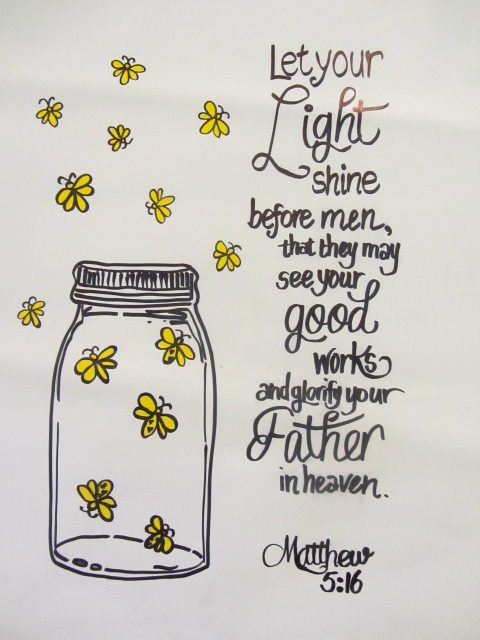 Let your
Light
shine
before men,
that they may
see your
good
works
and glorify your
Father
in heaven.
Matthew
5:16